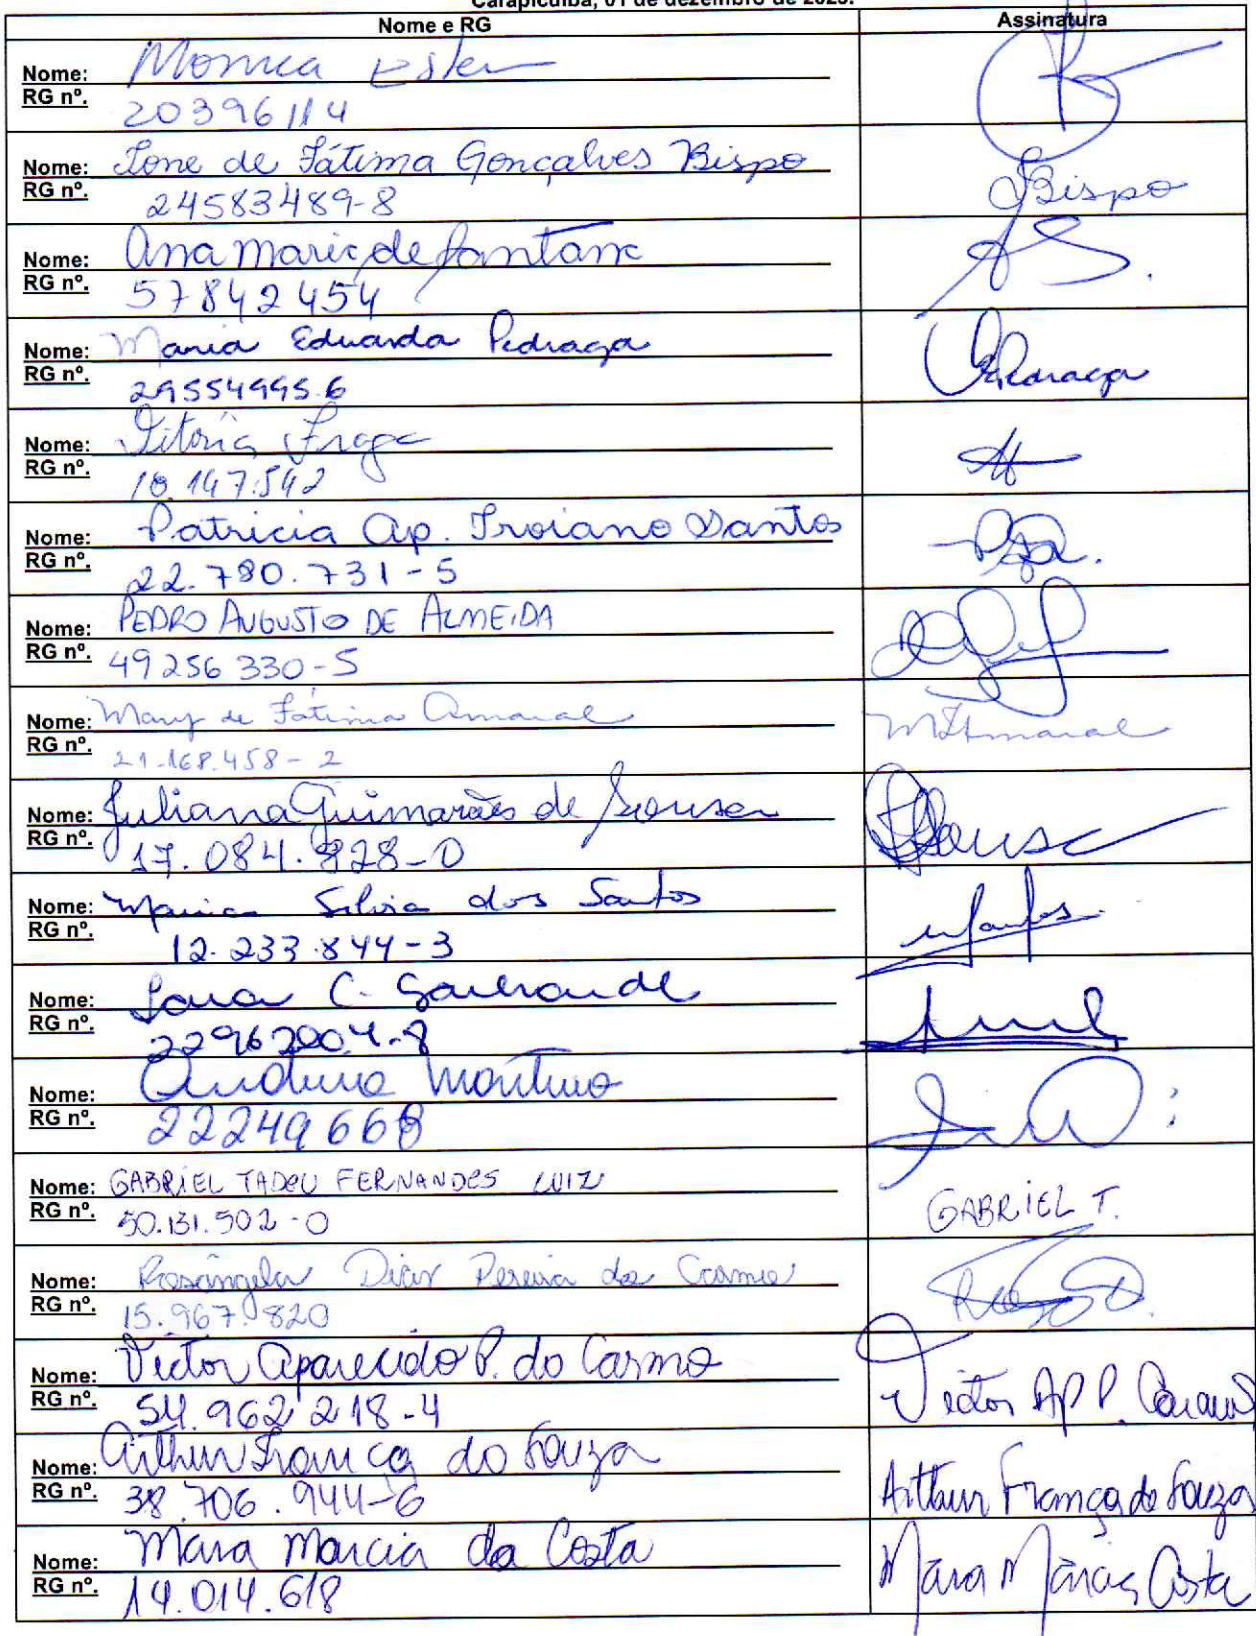 Carapicuíba, 01 de dezembro de 2023.
Nome e RG Assinatura
Nome: Monica Ester
RG nº. 20396114
Nome: Ione de Fátima Gonçalves Bispo
RG nº. 24583489-8 Bispo
Nome: Ana Maria de Santana
RG nº. 57842454 AS.
Nome: Maria Eduarda Pedraga
RG nº. 29554995.6
Nome: Vitória Fraga
RG nº. 18.147.542
Nome: Patricia Ap. Troiano Santos
RG nº. 22.780.731-5
Nome: PEDRO AUGUSTO DE ALMEIDA
RG nº. 49256330-5
Nome: Mary de Fatima Amaral MFAmaral
RG nº. 21.168.458-2
Nome: Juliana Guimarães de Sousa
RG nº. 17.084.828-0
Nome: Maria Silvia dos Santos
RG nº. 12.233.844-3
Nome: C.
RG nº. 22962004-8
Nome: Monteiro
RG nº. 22249668
Nome: GABRIEL TADEU FERNANDES LUIZ
RG nº. 50.131.502-0 GABRIEL T.
Nome: Rosângela Dias Pereira do Carmo
RG nº. 15.967.820
Nome: Victor Aparecido P. do Carmo
RG nº. 54.962218-4 Victor AP P.
Nome: Arthur França de Souza
RG nº. 38.706.944-6 Arthur França de Souza
Nome: Mara Marcia da Costa
RG nº. 14.014.618 Mara Márcia Costa